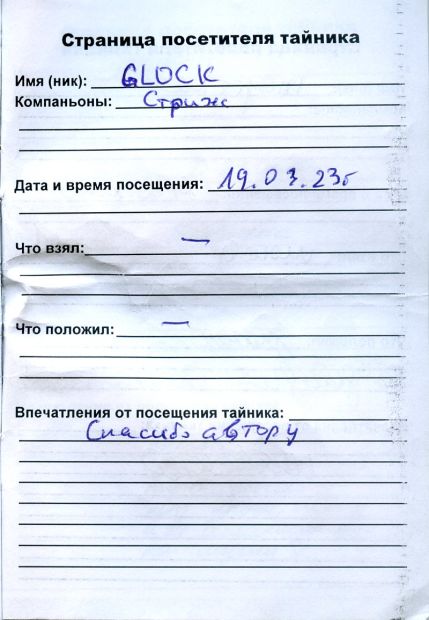 Страница посетителя тайника
Имя (ник): GLOCK
Компаньоны: Стриж
Дата и время посещения: 19.03.23г
Что взял: —
Что положил: —
Впечатления от посещения тайника:
Спасибо автору